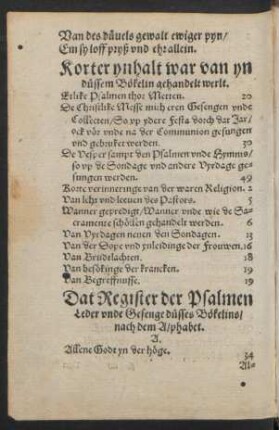 Van des düuels gewalt ewiger pyn/
Em sy loff pryß vnd ehr allein.
Korter ynhalt war van yn
düssem Bökelin gehandelt werlt.
Etlike Psalmen thor Metten. 20
De Christlike Misse mith eren Gesengen vnde
Collecten/So vp ydere Festa dorch dat Jar/
vör vnde na der Communion gesungen
vnd gebruket werden. 30
De Vesper sampt den Psalmen vnde Hymnis/
so vp de Sondage vnd andere Vyrdage ge-
sungen werden. 49
Korte verinneringe van der waren Religion. 2
Van lehr vnd leuen des Pastors. 5
Wanner geprediget/Wanner vnde wie de Sa-
cramente schölen gehandelt werden. 6
Van Vyrdagen neuen den Sondagen. 13
Van der Döpe vnd ynleidinge der Frouwen. 16
Van Brüdelachten. 18
Van besökinge der krancken. 19
Van Begreffnisse. 19
Dat Register der Psalmen
Leder vnde Gesenge düsses Bökelins/
nach dem A/phabet.
A.
Allene Godt yn der höge. 34
Al-